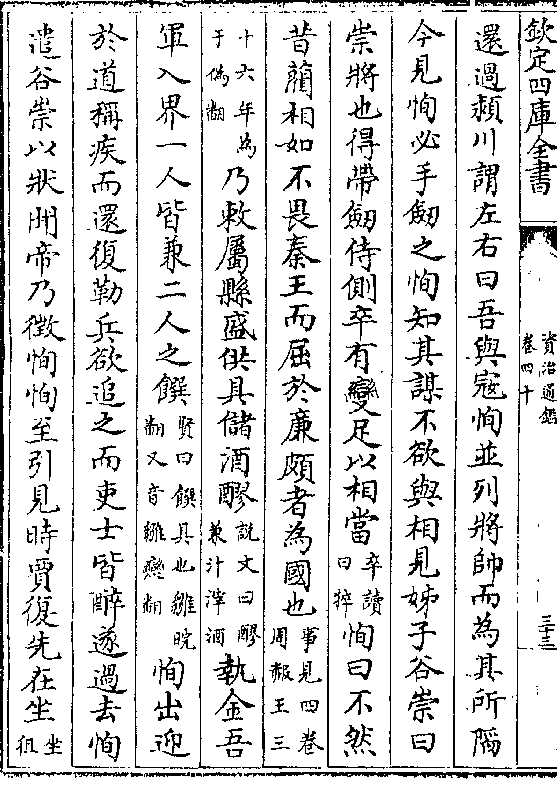 欽定四庫全書
資治通鑑
卷四十
三十三
還過潁川謂左右曰吾與寇恂並列將帥而為其所陷
今見恂必手劒之恂知其謀不欲與相見姊子谷崇曰
崇將也得帶劒侍側卒有變足以相當卒讀曰猝恂曰不然
昔藺相如不畏秦王而屈於廉頗者為國也事見四卷周赧王三
十六年為于偽翻乃敕屬縣盛供具儲酒醪說文曰醪兼汁滓酒執金吾
軍入界一人皆兼二人之饌賢曰饌具也雛晥翻又音雛戀翻恂出迎
於道稱疾而還復勒兵欲追之而吏士皆醉遂過去恂
遣谷崇以狀聞帝乃徵恂恂至引見時賈復先在坐坐徂